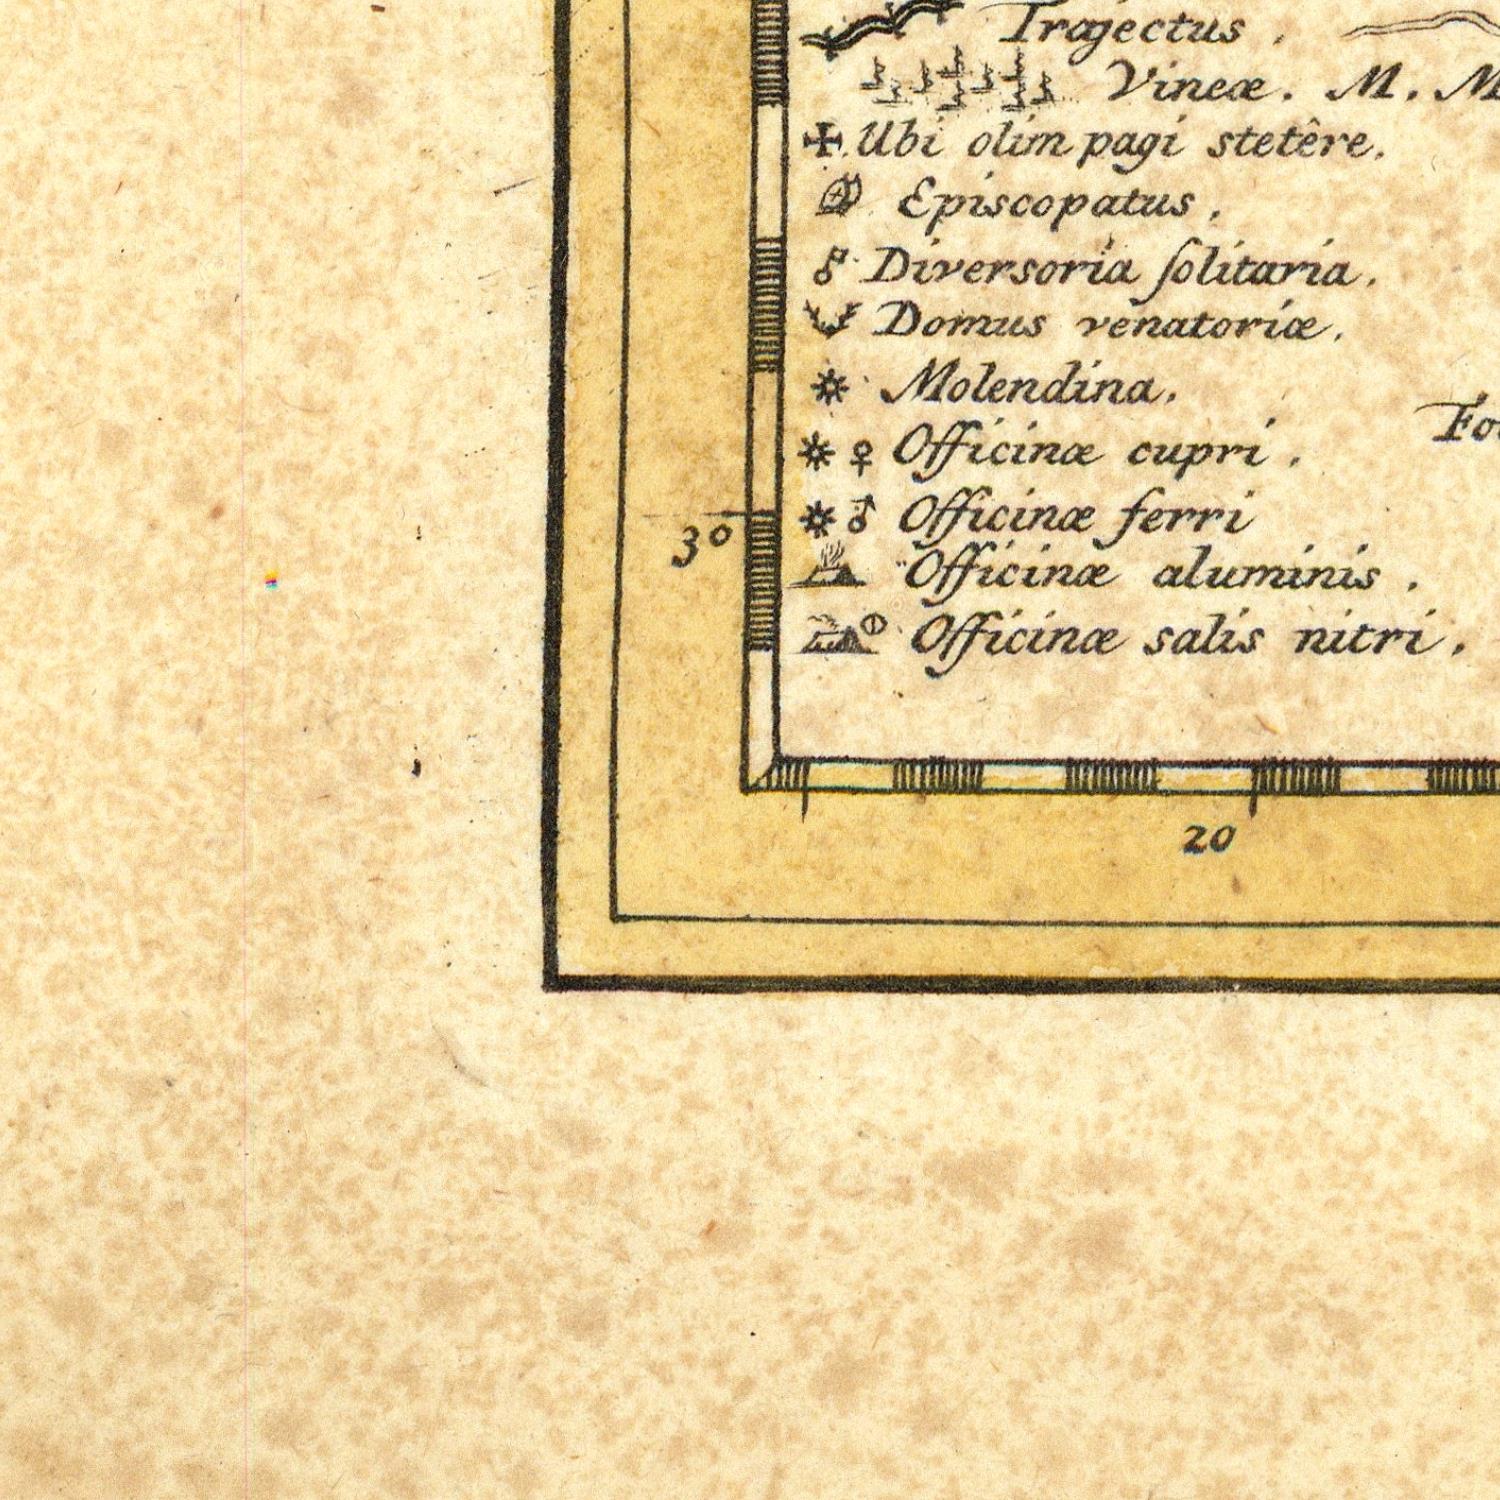 Trajectus.
Vineæ. M. M
Ubi olim pagi stetêre.
Episcopatus.
Diversoria ſolitaria.
Domus venatoriæ.
Molendina.
Officinæ cupri.
Officinæ ferri
Officinæ aluminis.
Officinæ salis nitri.
30
20